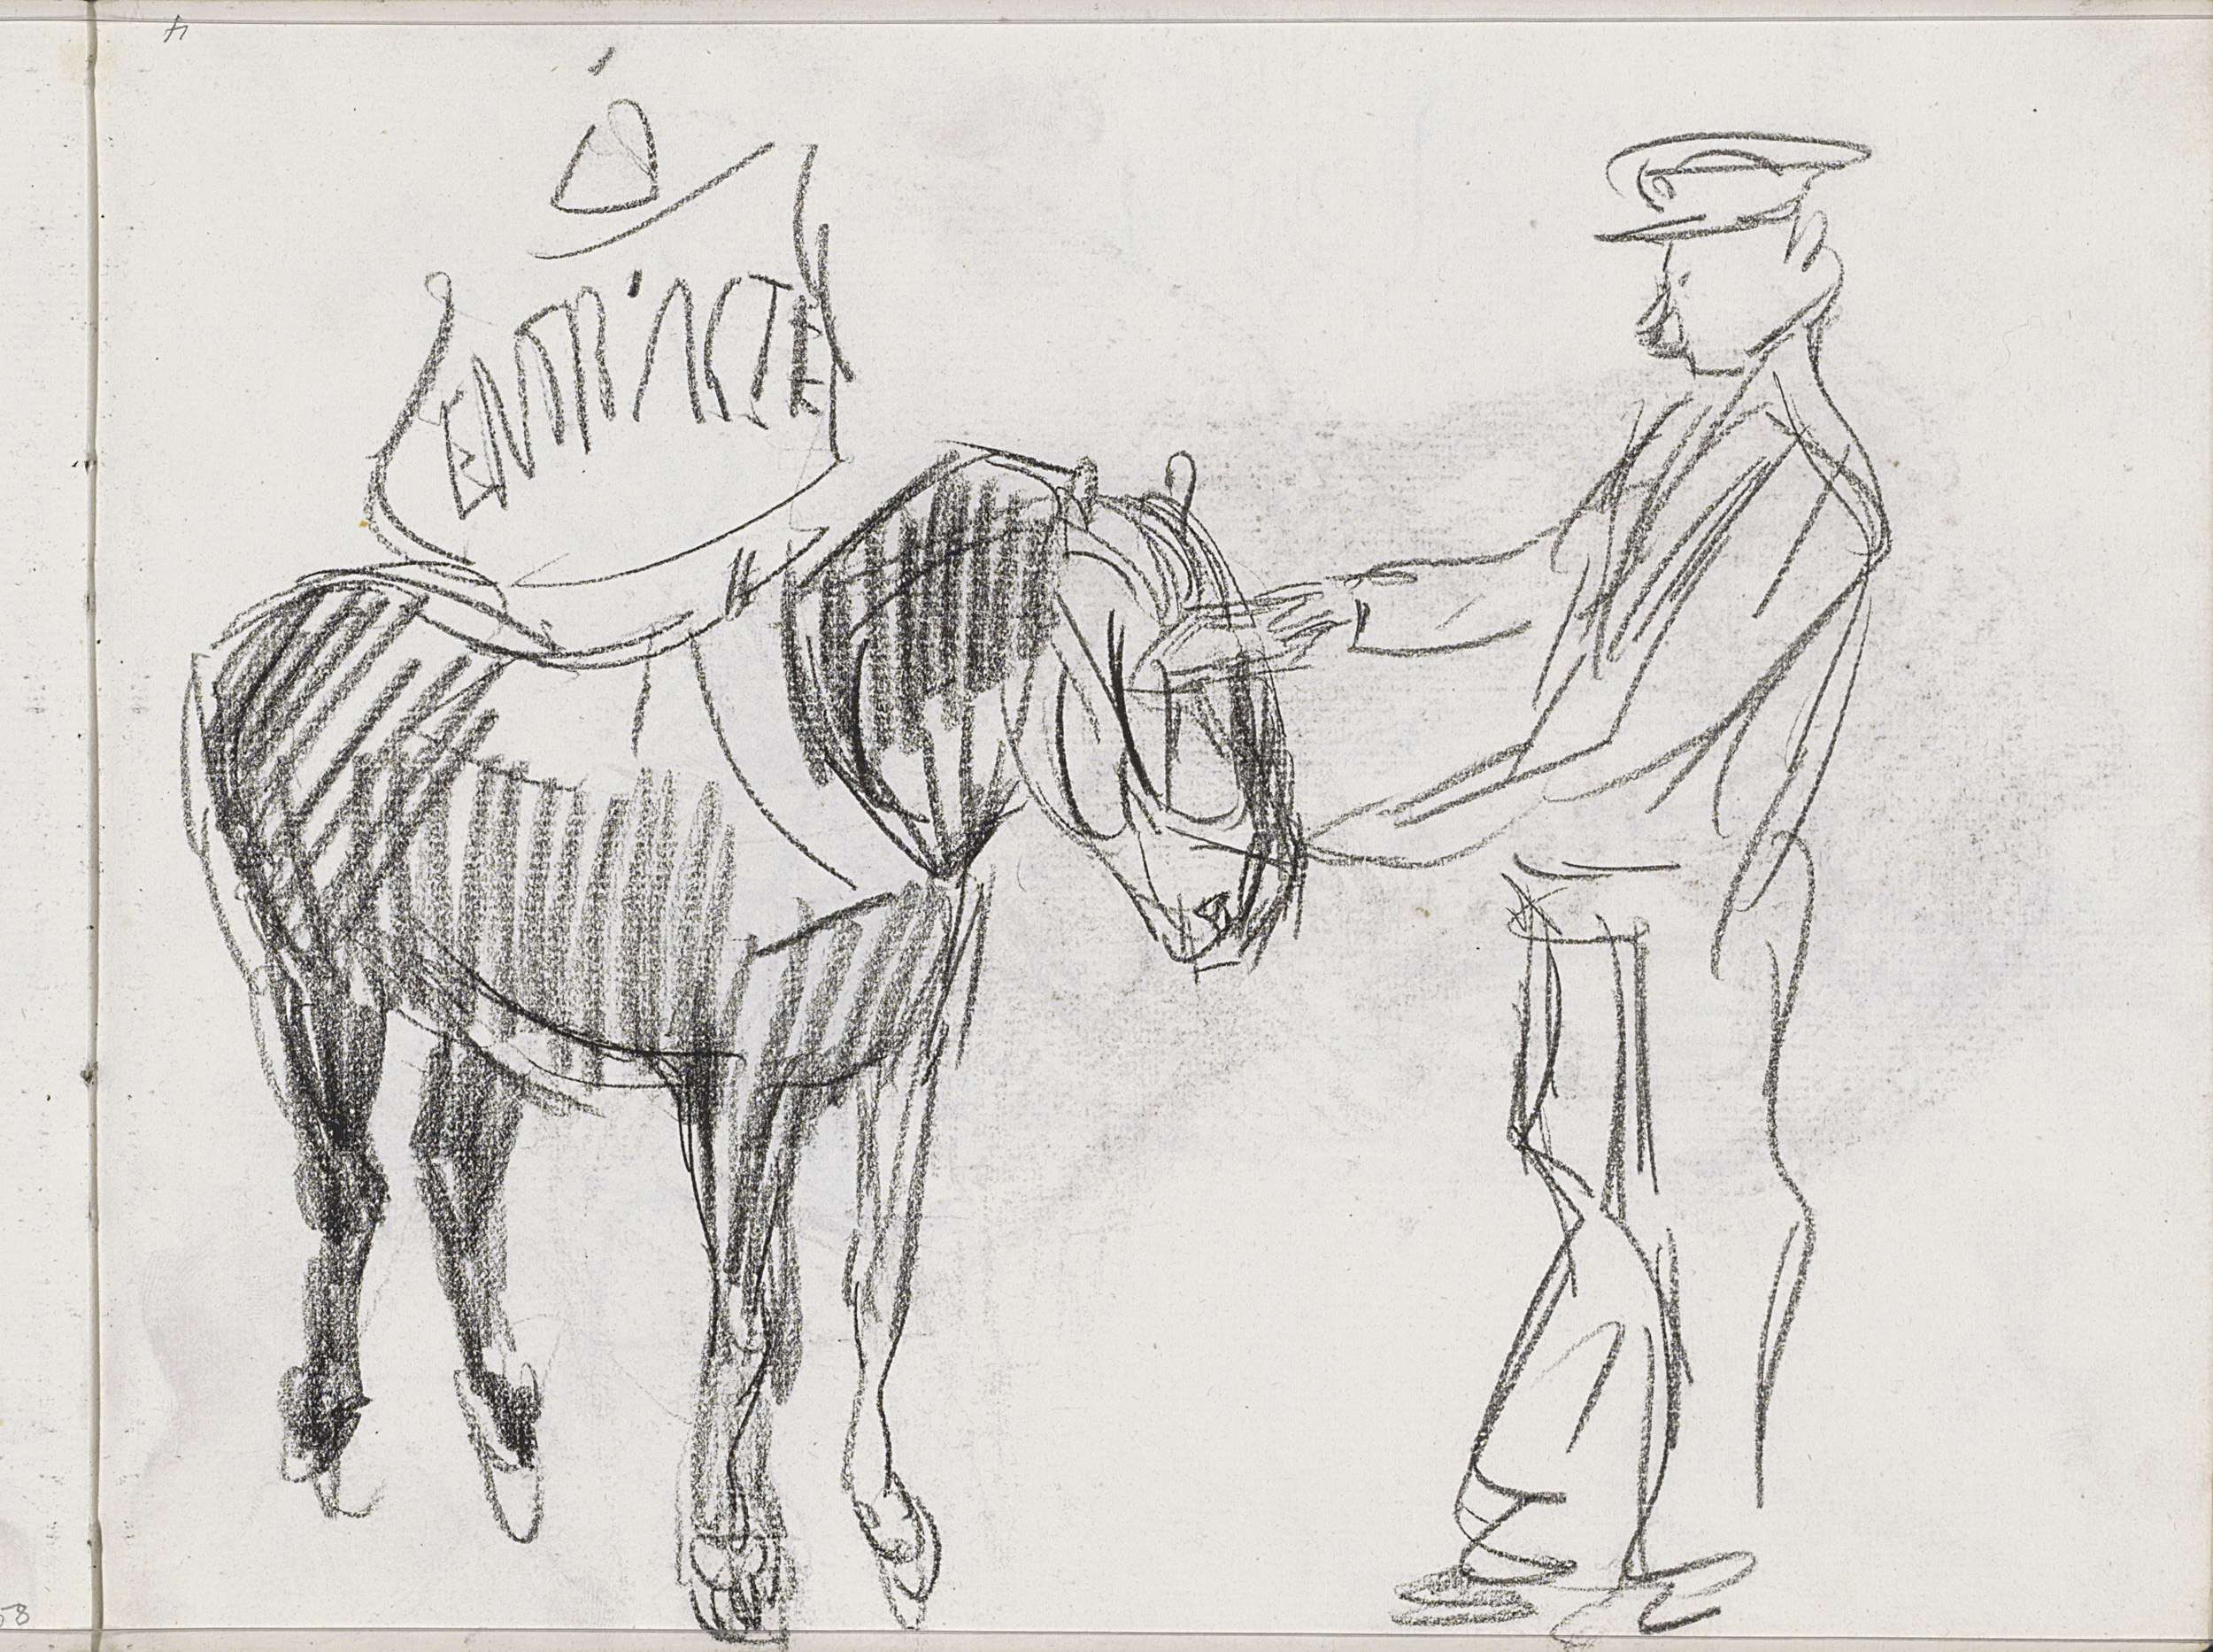 4
ENTR'ACTE
58